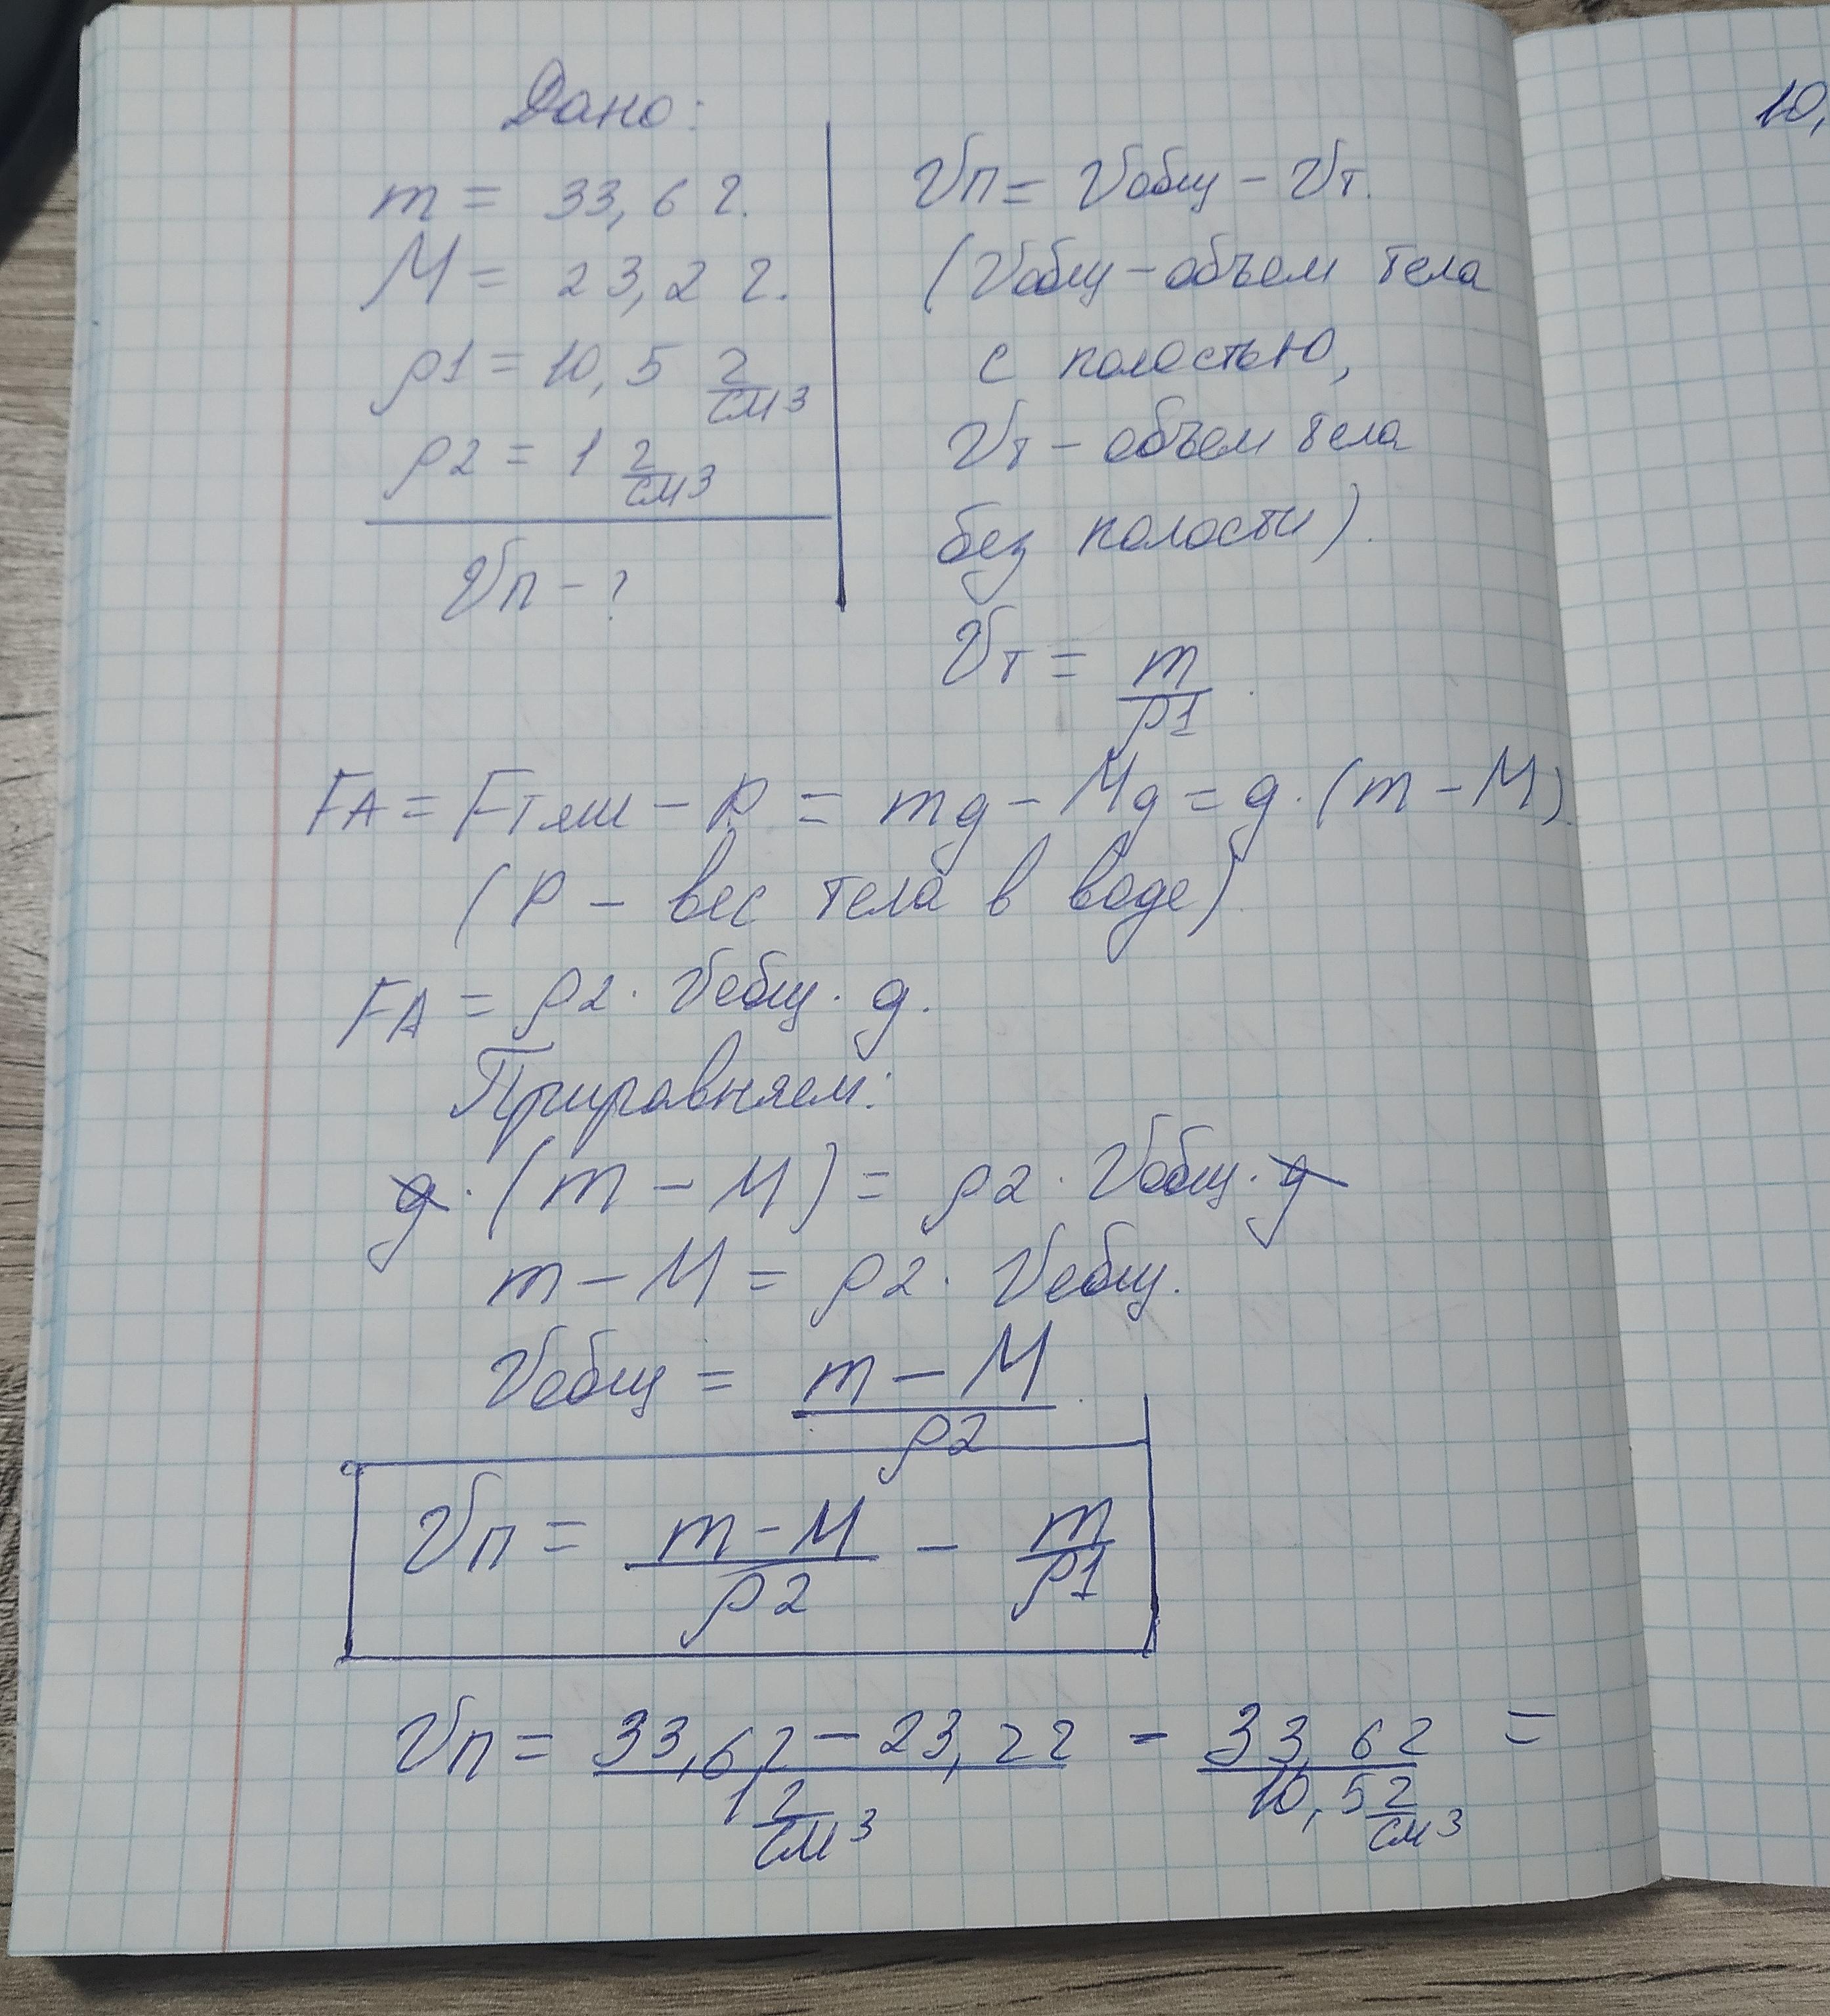 Дано:
m = 33,6 г.
M = 23,2 г.
ρ1 = 10,5 г/см3
ρ2 = 1 г/см3
Vп - ?
Vп = Vобщ - Vт.
(Vобщ - объем тела
с полостью,
Vт - объем тела
без полости).
Vт = m/ρ1
FA = Fтяж - P = mg - Mg = g · (m - M).
(P - вес тела в воде)
FA = ρ2 · Vобщ · g.
Приравняем:
g · (m - M) = ρ2 · Vобщ · g
m - M = ρ2 · Vобщ.
Vобщ = (m - M)/ρ2
Vп = (m - M)/ρ2 - m/ρ1
Vп = (33,6г - 23,2г)/(1 г/см3) - 33,6г/(10,5 г/см3) =
10,